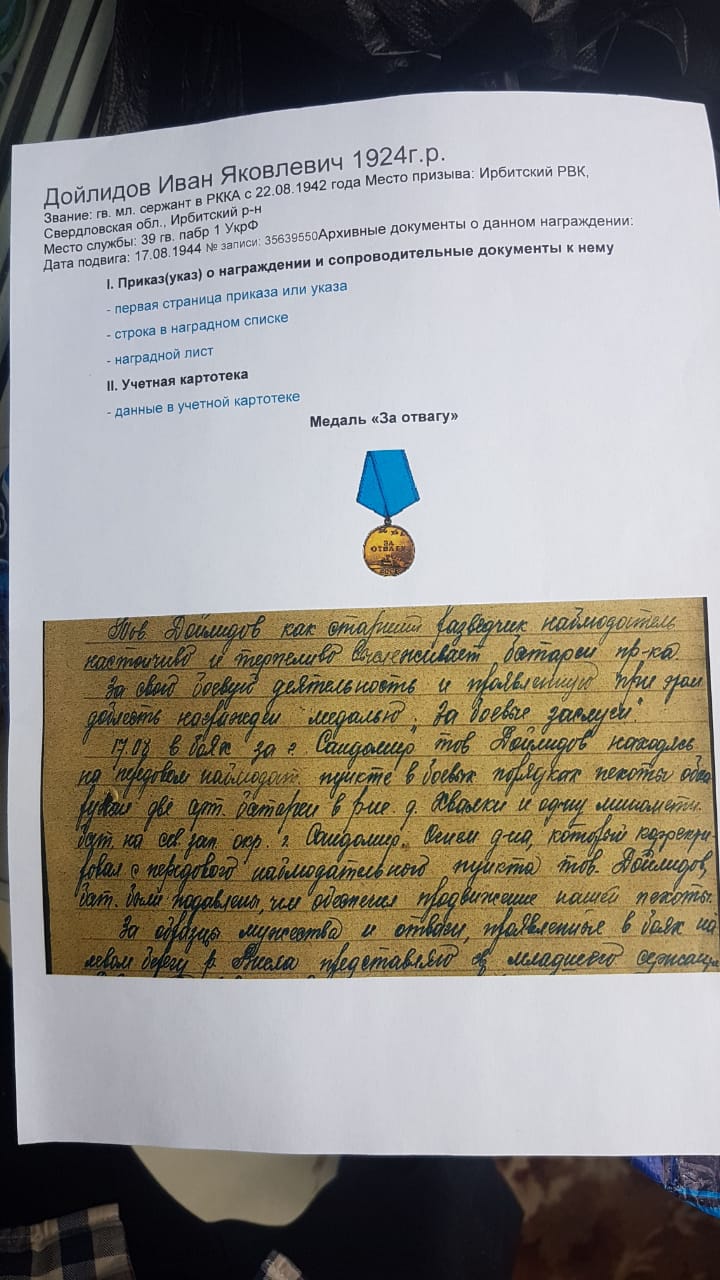 Дойлидов Иван Яковлевич 1924г.р.
Звание: гв. мл. сержант в РККА с 22.08.1942 года Место призыва: Ирбитский РВК,
Свердловская обл., Ирбитский р-н
Место службы: 39 гв. пабр 1 УкрФ
Дата подвига: 17.08.1944 № записи: 35639550Архивные документы о данном награждении:
I. Приказ(указ) о награждении и сопроводительные документы к нему
- первая страница приказа или указа
- строка в наградном списке
- наградной лист
II. Учетная картотека
- данные в учетной картотеке
Медаль «За отвагу»
ЗА
ОТВАГУ
СССР
Тов. Дойлидов как старший разведчик наблюдатель
настойчиво и терпеливо выслеживает батареи пр-ка.
За свою боевую деятельность и проявленную при этом
доблесть награжден медалью „За боевые заслуги".
17.08 в боях за г. Сандомир тов Дойлидов находясь
на передовом наблюдат. пункте в боевых порядках пехоты обна
ружил две арт. батареи в р-не. д. Хвалки и одну минометн.
бат. на сев. зап. окр. г. Сандомир. Огнем д-на, который корректи
ровал с передового наблюдательного пункта тов. Дойлидов,
бат. были подавлены, чем обеспечил продвижение нашей пехоты.
За образцы мужества и отваги, проявленные в боях на
левом берегу р. Висла представляю гв. младшего сержанта